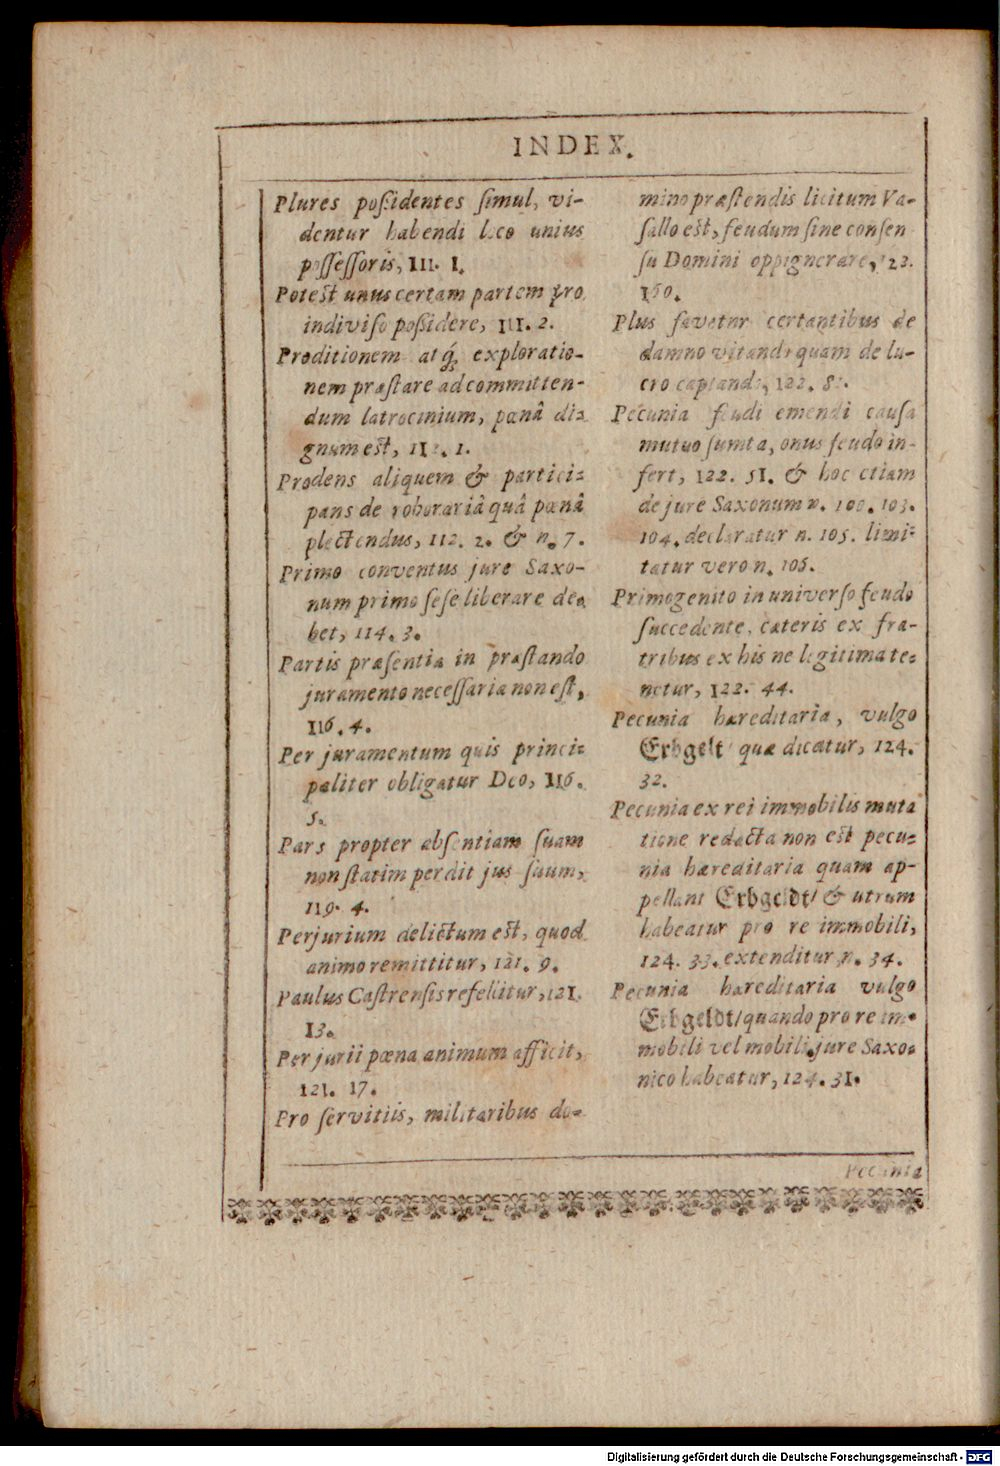 INDEX.
Plures possidentes simul, vi-
dentur habendi loco unius
possessoris, 111. 1.
Potest unus certam partem pro
indiviso possidere, 111. 2.
Proditionem atq́; exploratio-
nem præstare ad committen-
dum latrocinium, pœnâ di-
gnum est, 112. 1.
Prodens aliquem & partici-
pans de roborariâ quâ pœnâ
plectendus, 112. 2. & n. 7.
Primo conventus jure Saxo-
num primo sese liberare de-
bet, 114. 3.
Partis præsentia in præstando
juramento necessaria non est,
116. 4.
Per juramentum quis princi-
paliter obligatur Deo, 116.
5.
Pars propter absentiam suam
non statim perdit jus suum,
119. 4.
Perjurium delictum est, quod
animo remittitur, 121. 9.
Paulus Castrensis refellitur, 121.
13.
Perjurii pœna animum afficit,
121. 17.
Pro servitiis, militaribus do-
mino præstendis licitum Va-
sallo est, feudum sine consen
su Domini oppignerare, 123.
150.
Plus favetur certantibus de
damno vitando quam de lu-
cro captando, 122. 8.
Pecunia feudi emendi causa
mutuo sumta, onus feudo in-
fert, 122. 51. & hoc etiam
de jure Saxonum n. 100. 103.
104. declaratur n. 105. limi-
tatur vero n. 106.
Primogenito in universo feudo
succedente, cæteris ex fra-
tribus ex his ne legitima te-
netur, 122. 44.
Pecunia hæreditaria, vulgo
Erbgelt / quæ dicatur, 124.
32.
Pecunia ex rei immobilis muta
tione redacta non est pecu-
nia hæreditaria quam ap-
pellant Erbgeldt / & utrum
habeatur pro re immobili,
124. 33. extenditur, n. 34.
Pecunia hæreditaria vulgo
Erbgeldt / quando pro re im-
mobili vel mobili, jure Saxo-
nico habeatur, 124. 31.
Pecunia
Digitalisierung gefördert durch die Deutsche Forschungsgemeinschaft - DFG